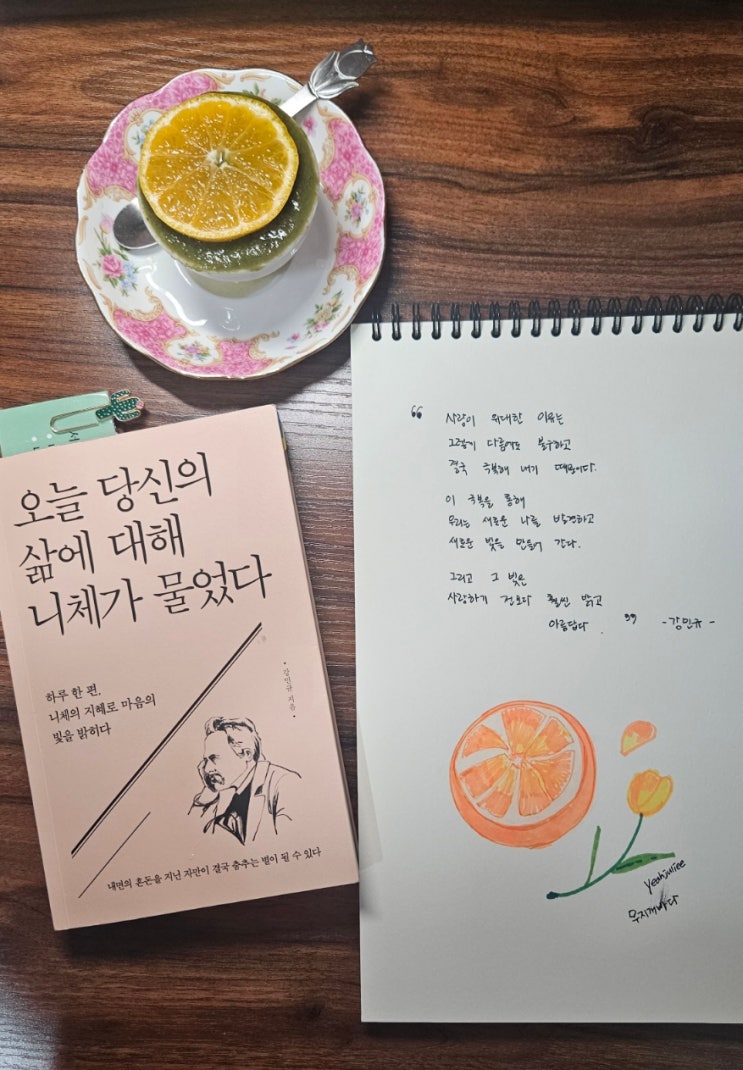 오늘 당신의
삶에 대해
니체가 물었다
하루 한 편,
니체의 지혜로 마음의
빛을 밝히다
강민규 지음
내면의 혼돈을 지닌 자만이 결국 춤추는 별이 될 수 있다
“ 사랑이 위대한 이유는
그렇게 다름에도 불구하고
결국 극복해 내기 때문이다.
이 극복을 통해
우리는 새로운 나를 발견하고
새로운 빛을 만들어 간다.
그리고 그 빛은
사랑하기 전보다 훨씬 밝고
아름답다. ” -강민규-
yeahjuliee
무지개바다